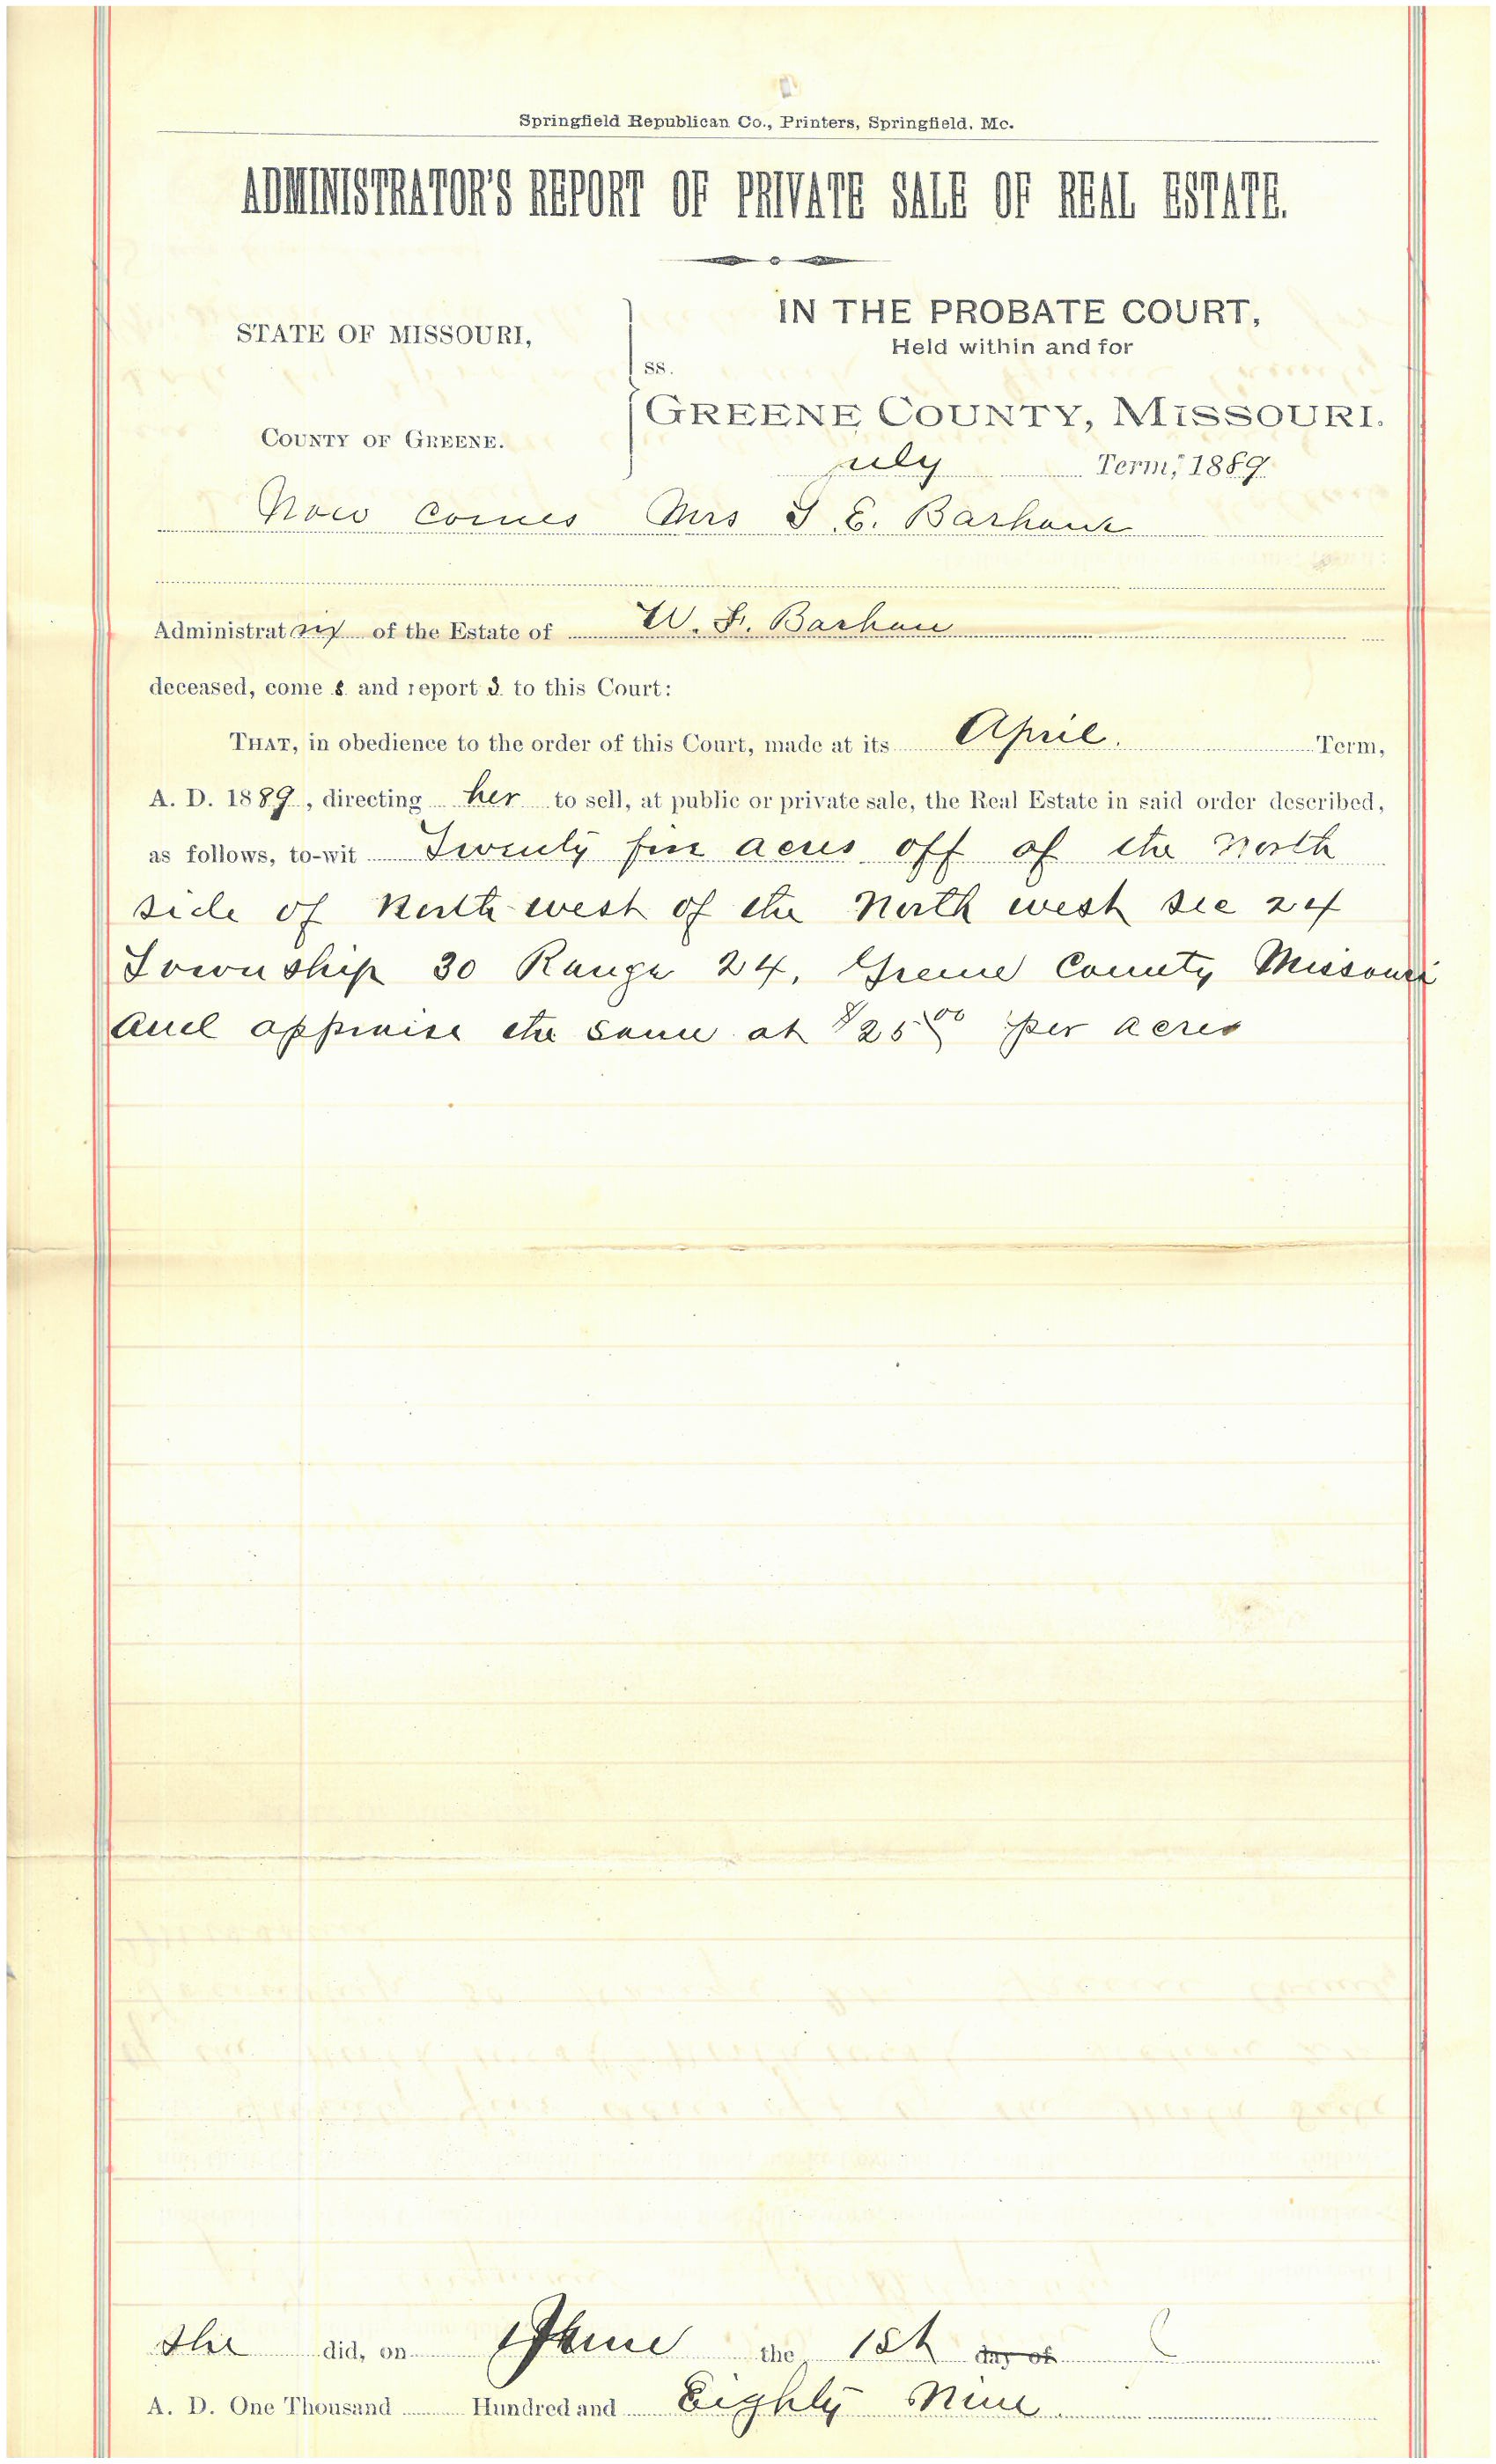 Springfield Republican Co., Printers, Springfield, Mo.
ADMINISTRATOR'S REPORT OF PRIVATE SALE OF REAL ESTATE.
STATE OF MISSOURI,
COUNTY OF GREENE.
ss.
IN THE PROBATE COURT,
Held within and for
GREENE COUNTY, MISSOURI.
July Term, 1889
Now comes Mrs S. E. Barham
Administratrix of the Estate of W. F. Barham
deceased, comes and reports to this Court:
THAT, in obedience to the order of this Court, made at its April. Term,
A. D. 1889, directing her to sell, at public or private sale, the Real Estate in said order described,
as follows, to-wit Twenty five acres off of the North
side of North west of the North west sec 24
Township 30 Range 24, Greene County Missouri
And appraise the same at $25.00 per acres
She did, on June the 15th day of
A. D. One Thousand Hundred and Eighty Nine